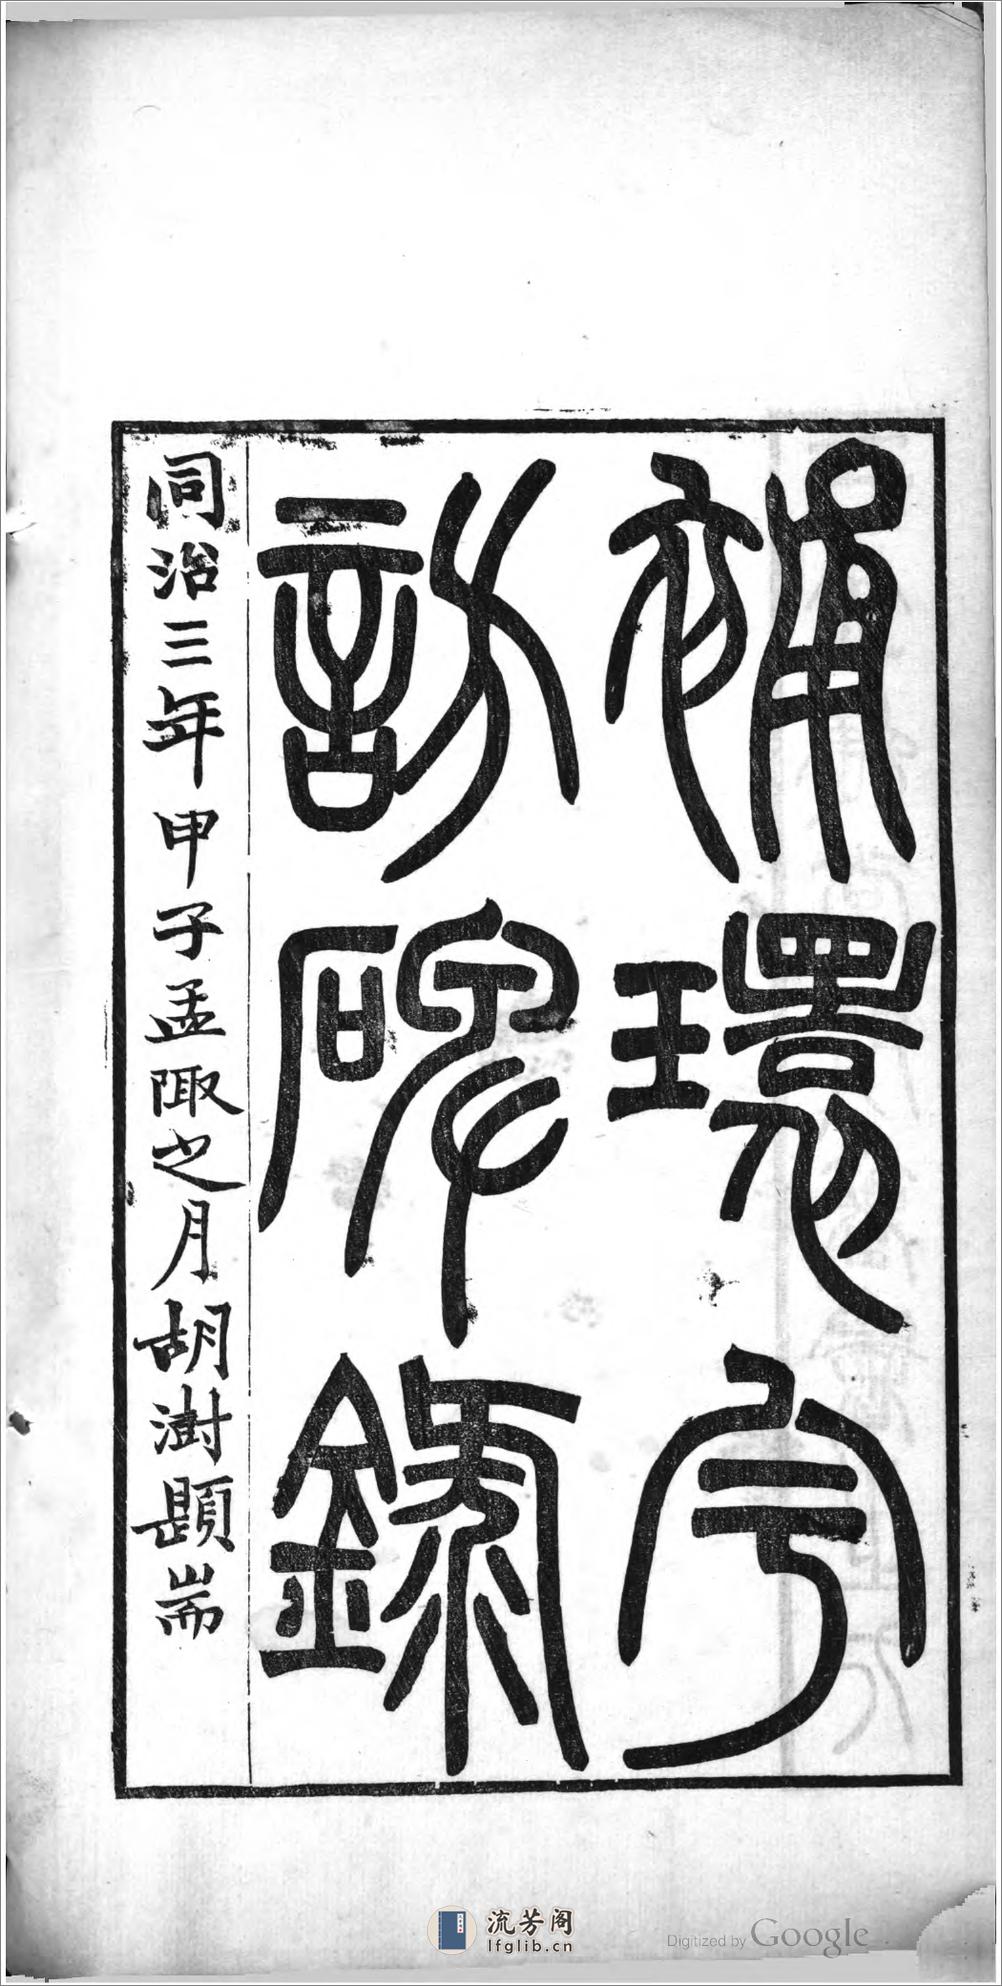 補寰宇
訪碑錄
同治三年甲子孟陬之月胡澍題耑
流芳阁
lfglib.cn
Digitized by Google